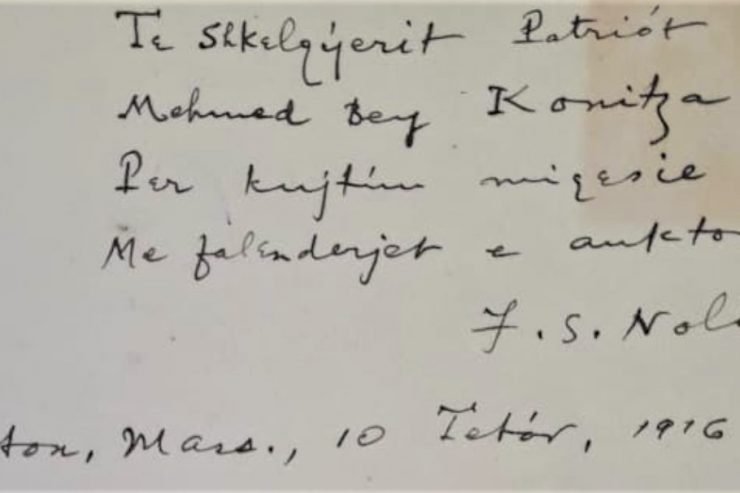 Te Shkelqyerit Patriót
Mehmed Bey Konitza
Per kujtim miqesie
Me falenderjet e aukto
F. S. Nol
ton, Mass., 10 Tetór, 1916